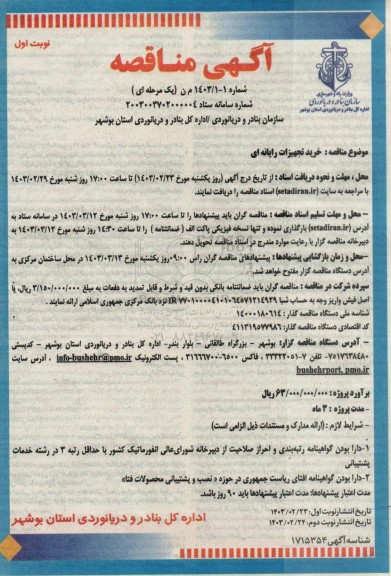 نوبت اول
آگهی مناقصه
شماره ۱-۱۴۰۳/۱ م ن (یک مرحله ای)
شماره سامانه ستاد ۲۰۰۳۰۰۳۷۰۲۰۰۰۰۰۴
سازمان بنادر و دریانوردی /اداره کل بنادر و دریانوردی استان بوشهر
وزارت راه و شهرسازی
سازمان بنادر و دریانوردی
اداره کل بنادر و دریانوردی استان بوشهر
موضوع مناقصه : خرید تجهیزات رایانه ای
محل ، مهلت و نحوه دریافت اسناد : از تاریخ درج آگهی (روز یکشنبه مورخ ۱۴۰۳/۰۲/۲۳) تا ساعت ۱۷:۰۰ روز شنبه مورخ ۱۴۰۳/۰۲/۲۹
با مراجعه به سایت (setadiran.ir) اسناد مناقصه را دریافت نمایند.
- محل و مهلت تسلیم اسناد مناقصه : مناقصه گران باید پیشنهادها را تا ساعت ۱۷:۰۰ روز شنبه مورخ ۱۴۰۳/۰۳/۱۲ در سامانه ستاد به
آدرس (setadiran.ir) بارگذاری نموده و تنها نسخه فیزیکی پاکت الف ( ضمانتنامه ) را تا ساعت ۱۴:۳۰ روز شنبه مورخ ۱۴۰۳/۰۳/۱۲ به
دبیرخانه مناقصه گزار با رعایت موارد مندرج در اسناد مناقصه تحویل دهند.
-محل و زمان بازگشایی پیشنهادها : پیشنهادهای مناقصه گران راس ۰۹:۰۰ روز یکشنبه مورخ ۱۴۰۳/۰۳/۱۳ در محل ساختمان مرکزی به
آدرس دستگاه مناقصه گزار مفتوح خواهد شد.
سپرده شرکت در مناقصه : مناقصه گران باید ضمانتنامه بانکی بدون قید و شرط و قابل تمدید به دفعات به مبلغ ۳/۱۵۰/۰۰۰/۰۰۰ ریال، یا
اصل فیش واریز وجه به حساب شبا IR ۷۷۰۱۰۰۰۰۴۱۰۱۰۶۴۵۷۱۲۱۴۹۲۹ نزد بانک مرکزی جمهوری اسلامی ارائه نمایند .
شناسه ملی دستگاه مناقصه گذار : ۱۴۰۰۰۱۸۰۶۱۴
کد اقتصادی دستگاه مناقصه گذار: ۴۱۱۳۱۹۵۷۷۹۸۶
- آدرس دستگاه مناقصه گزار: بوشهر - بزرگراه طالقانی - بلوار بندر- اداره کل بنادر و دریانوردی استان بوشهر - کدپستی
۷۵۱۷۶۳۸۴۸۰- تلفن ۷-۳۳۳۲۲۰۵۱ ، فاکس ۶۵۰۰-۳۱۶۶۷۰۰ ، پست الکترونیک info-bushehr@pmo.ir ، آدرس سایت
bushehrport. pmo.ir
برآورد پروژه: ۶۳/۰۰۰/۰۰۰/۰۰۰ ریال
-مدت پروژه : ۳ ماه
- شرایط لازم : (ارائه مدارک و مستندات ذیل الزامی است)
۱-دارا بودن گواهینامه رتبه‌بندی و احراز صلاحیت از دبیرخانه شورای‌عالی انفورماتیک کشور با حداقل رتبه ۳ در رشته خدمات
پشتیبانی
۲-دارا بودن گواهینامه افتای ریاست جمهوری در حوزه « نصب و پشتیبانی محصولات فتا»
مدت اعتبار پیشنهادها: مدت اعتبار پیشنهادها باید ۹۰ روز باشد.
تاریخ انتشار نوبت اول: ۱۴۰۳/۰۲/۲۳
تاریخ انتشار نوبت دوم: ۱۴۰۳/۰۲/۲۴
اداره کل بنادر و دریانوردی استان بوشهر
شناسه آگهی ۱۷۱۵۳۵۴